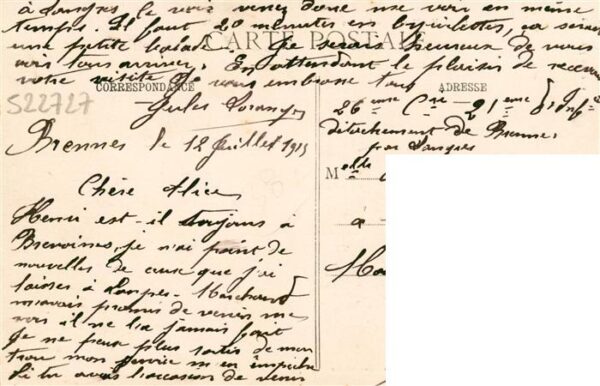 à Langres le voir venez donc me voir en même
temps. Il faut 20 minutes en bicyclettes, ça serait
une petite balade. Je serais heureux de vous
voir tous arriver. En attendant le plaisir de recevoir
votre visite Je vous embrasse tous
CARTE POSTALE
CORRESPONDANCE
ADRESSE
522727
Jules
26eme Cie - 21eme d'Infie
détachement de Brennes
par Langres
Brennes le 12 Juillet 1915
Melle
à
Chère Alice
Henri est-il toujours à
je n'ai point de
nouvelles de ceux que j'ai
laissés à Langres - Marchand
m'avait promis de venir me
voir il ne l'a jamais fait
Je ne peux plus sortir de mon
trou mon service m'en empêche
Si tu avais l'occasion de venir